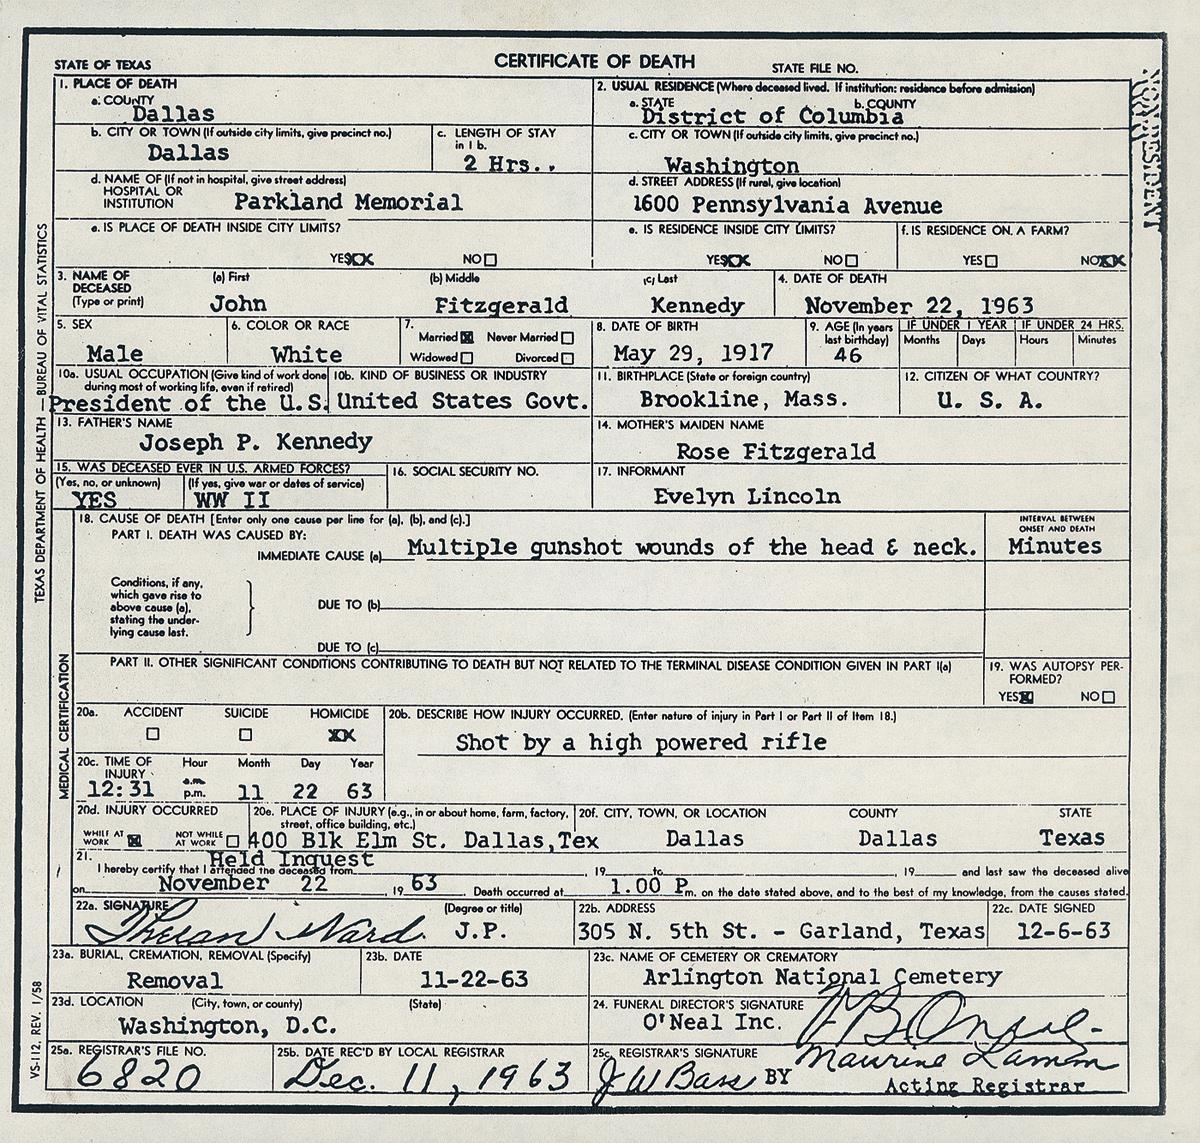 CERTIFICATE OF DEATH
STATE OF TEXAS
STATE FILE NO.
NONRESIDENT
TEXAS DEPARTMENT OF HEALTH — BUREAU OF VITAL STATISTICS
1. PLACE OF DEATH
a. COUNTY
Dallas
2. USUAL RESIDENCE (Where deceased lived. If institution: residence before admission)
a. STATE b. COUNTY
District of Columbia
b. CITY OR TOWN (If outside city limits, give precinct no.)
Dallas
c. LENGTH OF STAY
in 1 b.
2 Hrs..
c. CITY OR TOWN (If outside city limits, give precinct no.)
Washington
d. NAME OF (If not in hospital, give street address)
HOSPITAL OR
INSTITUTION
Parkland Memorial
d. STREET ADDRESS (If rural, give location)
1600 Pennsylvania Avenue
e. IS PLACE OF DEATH INSIDE CITY LIMITS?
YES XX NO
e. IS RESIDENCE INSIDE CITY LIMITS?
YES XX NO
f. IS RESIDENCE ON A FARM?
YES NO XX
3. NAME OF
DECEASED
(Type or print)
(a) First
John
(b) Middle
Fitzgerald
(c) Last
Kennedy
4. DATE OF DEATH
November 22, 1963
5. SEX
Male
6. COLOR OR RACE
White
7.
Married X Never Married
Widowed Divorced
8. DATE OF BIRTH
May 29, 1917
9. AGE (In years
last birthday)
46
IF UNDER 1 YEAR
Months Days
IF UNDER 24 HRS.
Hours Minutes
10a. USUAL OCCUPATION (Give kind of work done
during most of working life, even if retired)
President of the U.S.
10b. KIND OF BUSINESS OR INDUSTRY
United States Govt.
11. BIRTHPLACE (State or foreign country)
Brookline, Mass.
12. CITIZEN OF WHAT COUNTRY?
U. S. A.
13. FATHER'S NAME
Joseph P. Kennedy
14. MOTHER'S MAIDEN NAME
Rose Fitzgerald
15. WAS DECEASED EVER IN U.S. ARMED FORCES?
(Yes, no, or unknown)
YES
(If yes, give war or dates of service)
WW II
16. SOCIAL SECURITY NO.
17. INFORMANT
Evelyn Lincoln
MEDICAL CERTIFICATION
18. CAUSE OF DEATH [Enter only one cause per line for (a), (b), and (c).]
PART I. DEATH WAS CAUSED BY:
IMMEDIATE CAUSE (a) Multiple gunshot wounds of the head & neck.
INTERVAL BETWEEN
ONSET AND DEATH
Minutes
Conditions, if any,
which gave rise to
above cause (a),
stating the under-
lying cause last.
DUE TO (b)
DUE TO (c)
PART II. OTHER SIGNIFICANT CONDITIONS CONTRIBUTING TO DEATH BUT NOT RELATED TO THE TERMINAL DISEASE CONDITION GIVEN IN PART I(a)
19. WAS AUTOPSY PER-
FORMED?
YES X NO
20a. ACCIDENT SUICIDE HOMICIDE
XX
20b. DESCRIBE HOW INJURY OCCURRED. (Enter nature of injury in Part I or Part II of Item 18.)
Shot by a high powered rifle
20c. TIME OF
INJURY
Hour Month Day Year
12:31 a.m.
p.m. 11 22 63
20d. INJURY OCCURRED
WHILE AT
WORK X
NOT WHILE
AT WORK
20e. PLACE OF INJURY (e.g., in or about home, farm, factory,
street, office building, etc.)
400 Blk Elm St. Dallas,Tex
20f. CITY, TOWN, OR LOCATION COUNTY STATE
Dallas Dallas Texas
21. Held Inquest
I hereby certify that I attended the deceased from 19 to 19 and last saw the deceased alive
on November 22 19 63 Death occurred at 1.00 P m. on the date stated above, and to the best of my knowledge, from the causes stated.
22a. SIGNATURE
Theran Ward
(Degree or title)
J.P.
22b. ADDRESS
305 N. 5th St. - Garland, Texas
22c. DATE SIGNED
12-6-63
23a. BURIAL, CREMATION, REMOVAL (Specify)
Removal
23b. DATE
11-22-63
23c. NAME OF CEMETERY OR CREMATORY
Arlington National Cemetery
23d. LOCATION (City, town, or county) (State)
Washington, D.C.
24. FUNERAL DIRECTOR'S SIGNATURE
O'Neal Inc.
25a. REGISTRAR'S FILE NO.
6820
25b. DATE REC'D BY LOCAL REGISTRAR
Dec. 11, 1963
25c. REGISTRAR'S SIGNATURE
J W Bass BY
Acting Registrar
VS-112, REV. 1/58